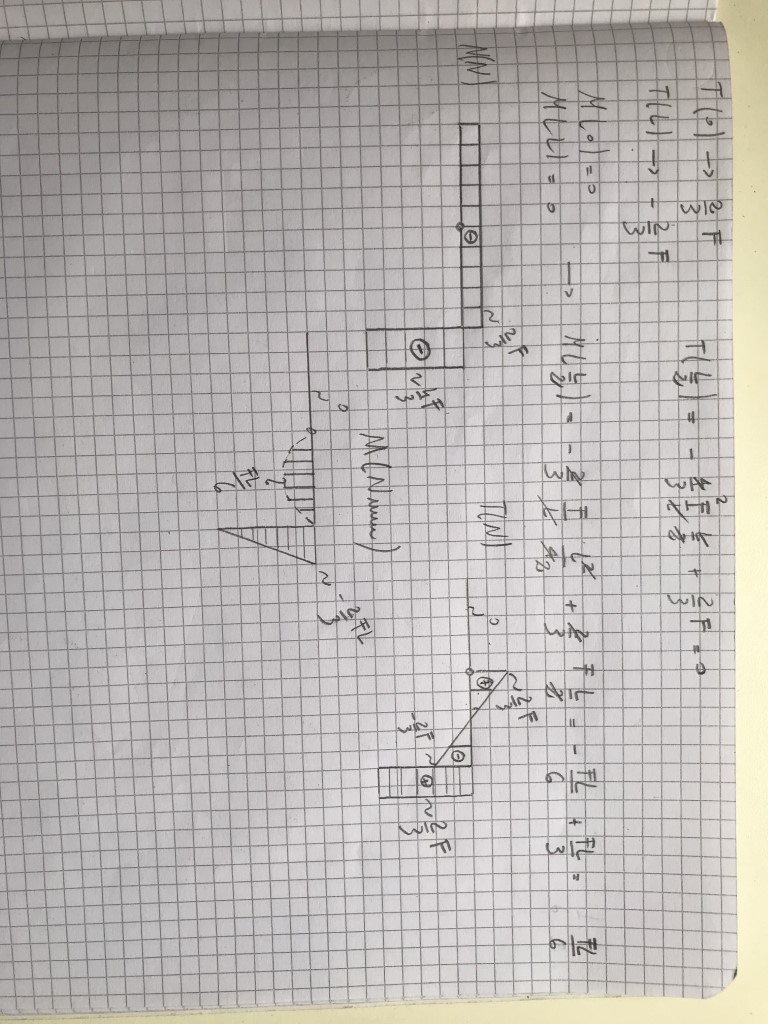 T(0) → 2/3 F    T(L/2) = - 4/3 F/L L/2 + 2/3 F = 0
T(L) → - 2/3 F
M(0) = 0
M(L) = 0 → M(L/2) = - 2/3 F/L L²/4 + 2/3 F L/2 = - FL/6 + FL/3 = FL/6
N(N)
⊖
~ 2/3 F
⊖
~ 4/3 F
T(N)
~ 0
⊕
~ 2/3 F
⊖
- 2/3 F ~
⊕
~ 2/3 F
M(Nmm)
~ 0
FL/6
~ - 2/3 FL